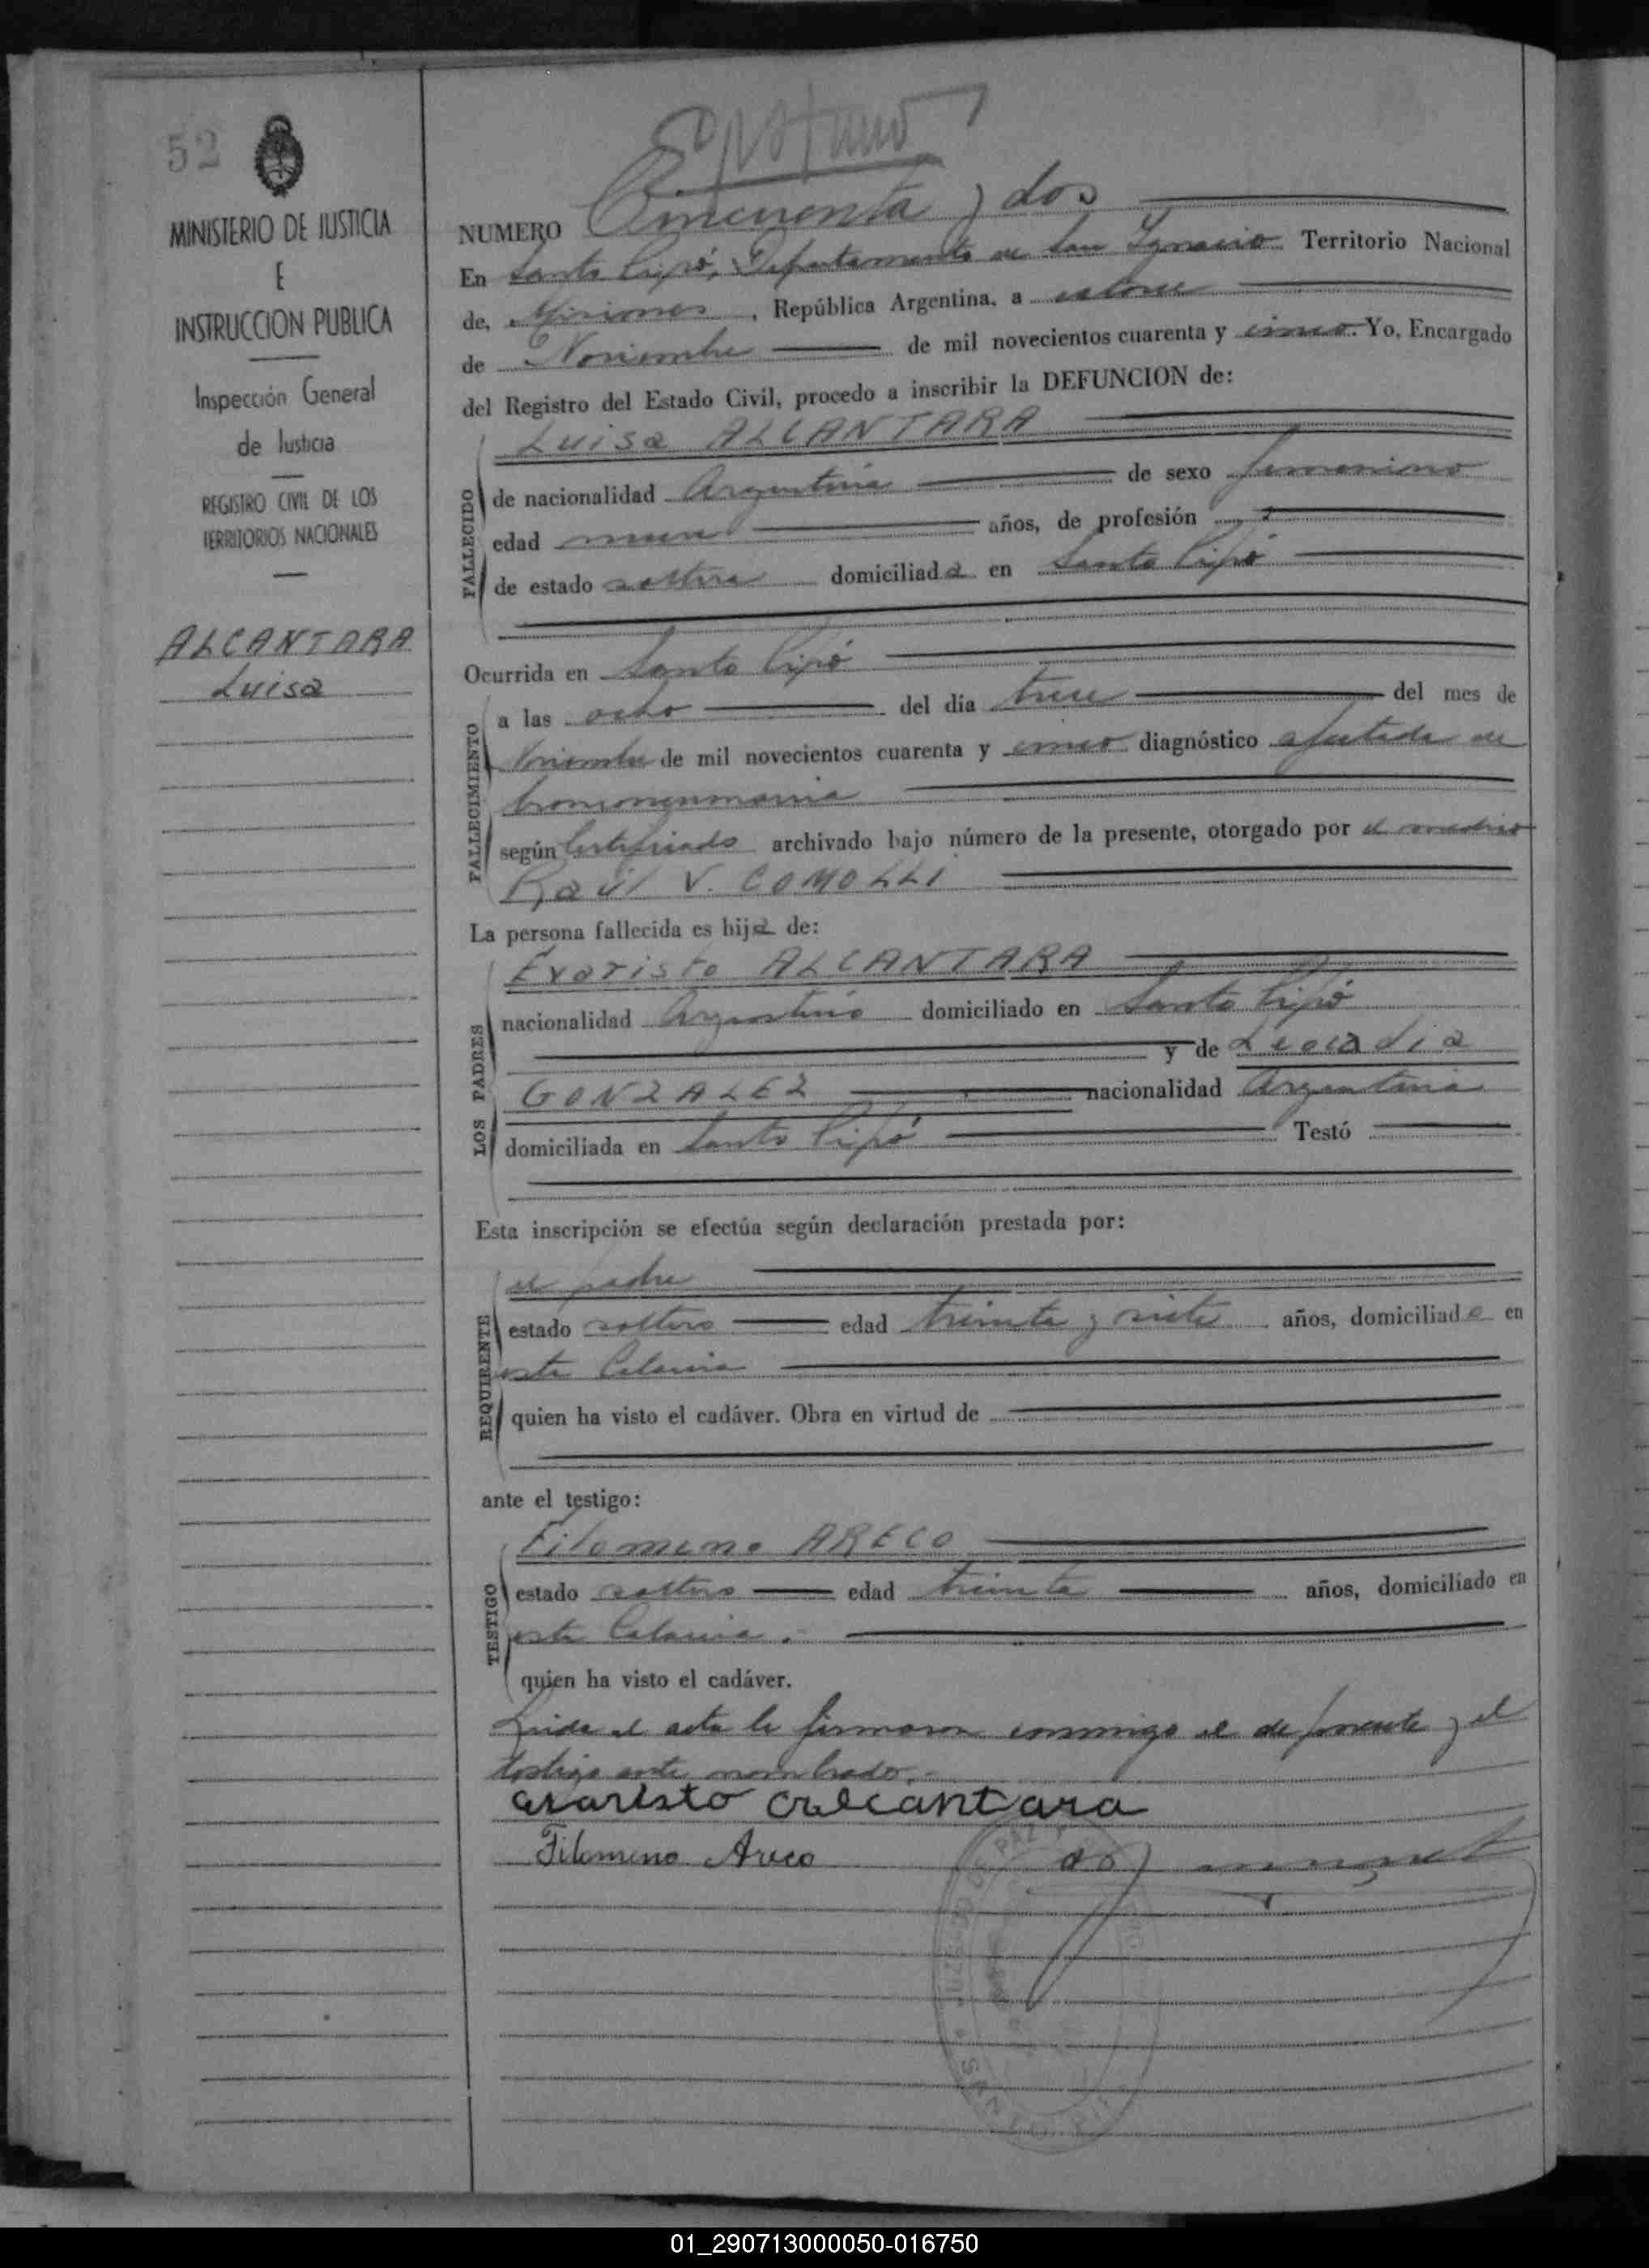 52
MINISTERIO DE JUSTICIA
E
INSTRUCCION PUBLICA
Inspección General
de Justicia
REGISTRO CIVIL DE LOS
TERRITORIOS NACIONALES
ALCANTARA
Luisa
NUMERO Cincuenta y dos
En Santo Pipó, Departamento de San Ignacio Territorio Nacional
de, Misiones, República Argentina, a catorce
de Noviembre de mil novecientos cuarenta y cinco. Yo, Encargado
del Registro del Estado Civil, procedo a inscribir la DEFUNCION de:
Luisa ALCANTARA
FALLECIDO
de nacionalidad Argentina de sexo femenino
edad nueve años, de profesión
de estado soltera domiciliada en Santo Pipó
Ocurrida en Santo Pipó
FALLECIMIENTO
a las ocho del día trece del mes de
Noviembre de mil novecientos cuarenta y cinco diagnóstico afectada de
bronconeumonia
según Certificado archivado bajo número de la presente, otorgado por el medico
Raúl V. COMOLLI
La persona fallecida es hija de:
LOS PADRES
Evaristo ALCANTARA
nacionalidad Argentino domiciliado en Santo Pipó
y de Leocadia
GONZALEZ nacionalidad Argentina
domiciliada en Santo Pipó Testó
Esta inscripción se efectúa según declaración prestada por:
REQUIRENTE
el padre
estado soltero edad treinta y siete años, domiciliado en
esta Colonia
quien ha visto el cadáver. Obra en virtud de
ante el testigo:
TESTIGO
Filomeno ARECO
estado soltero edad treinta años, domiciliado en
esta Colonia.
quien ha visto el cadáver.
Leida el acta la firmaron conmigo el deponente y el
testigo ante nombrado.
Evaristo Alcantara
Filomeno Areco
01_290713000050-016750